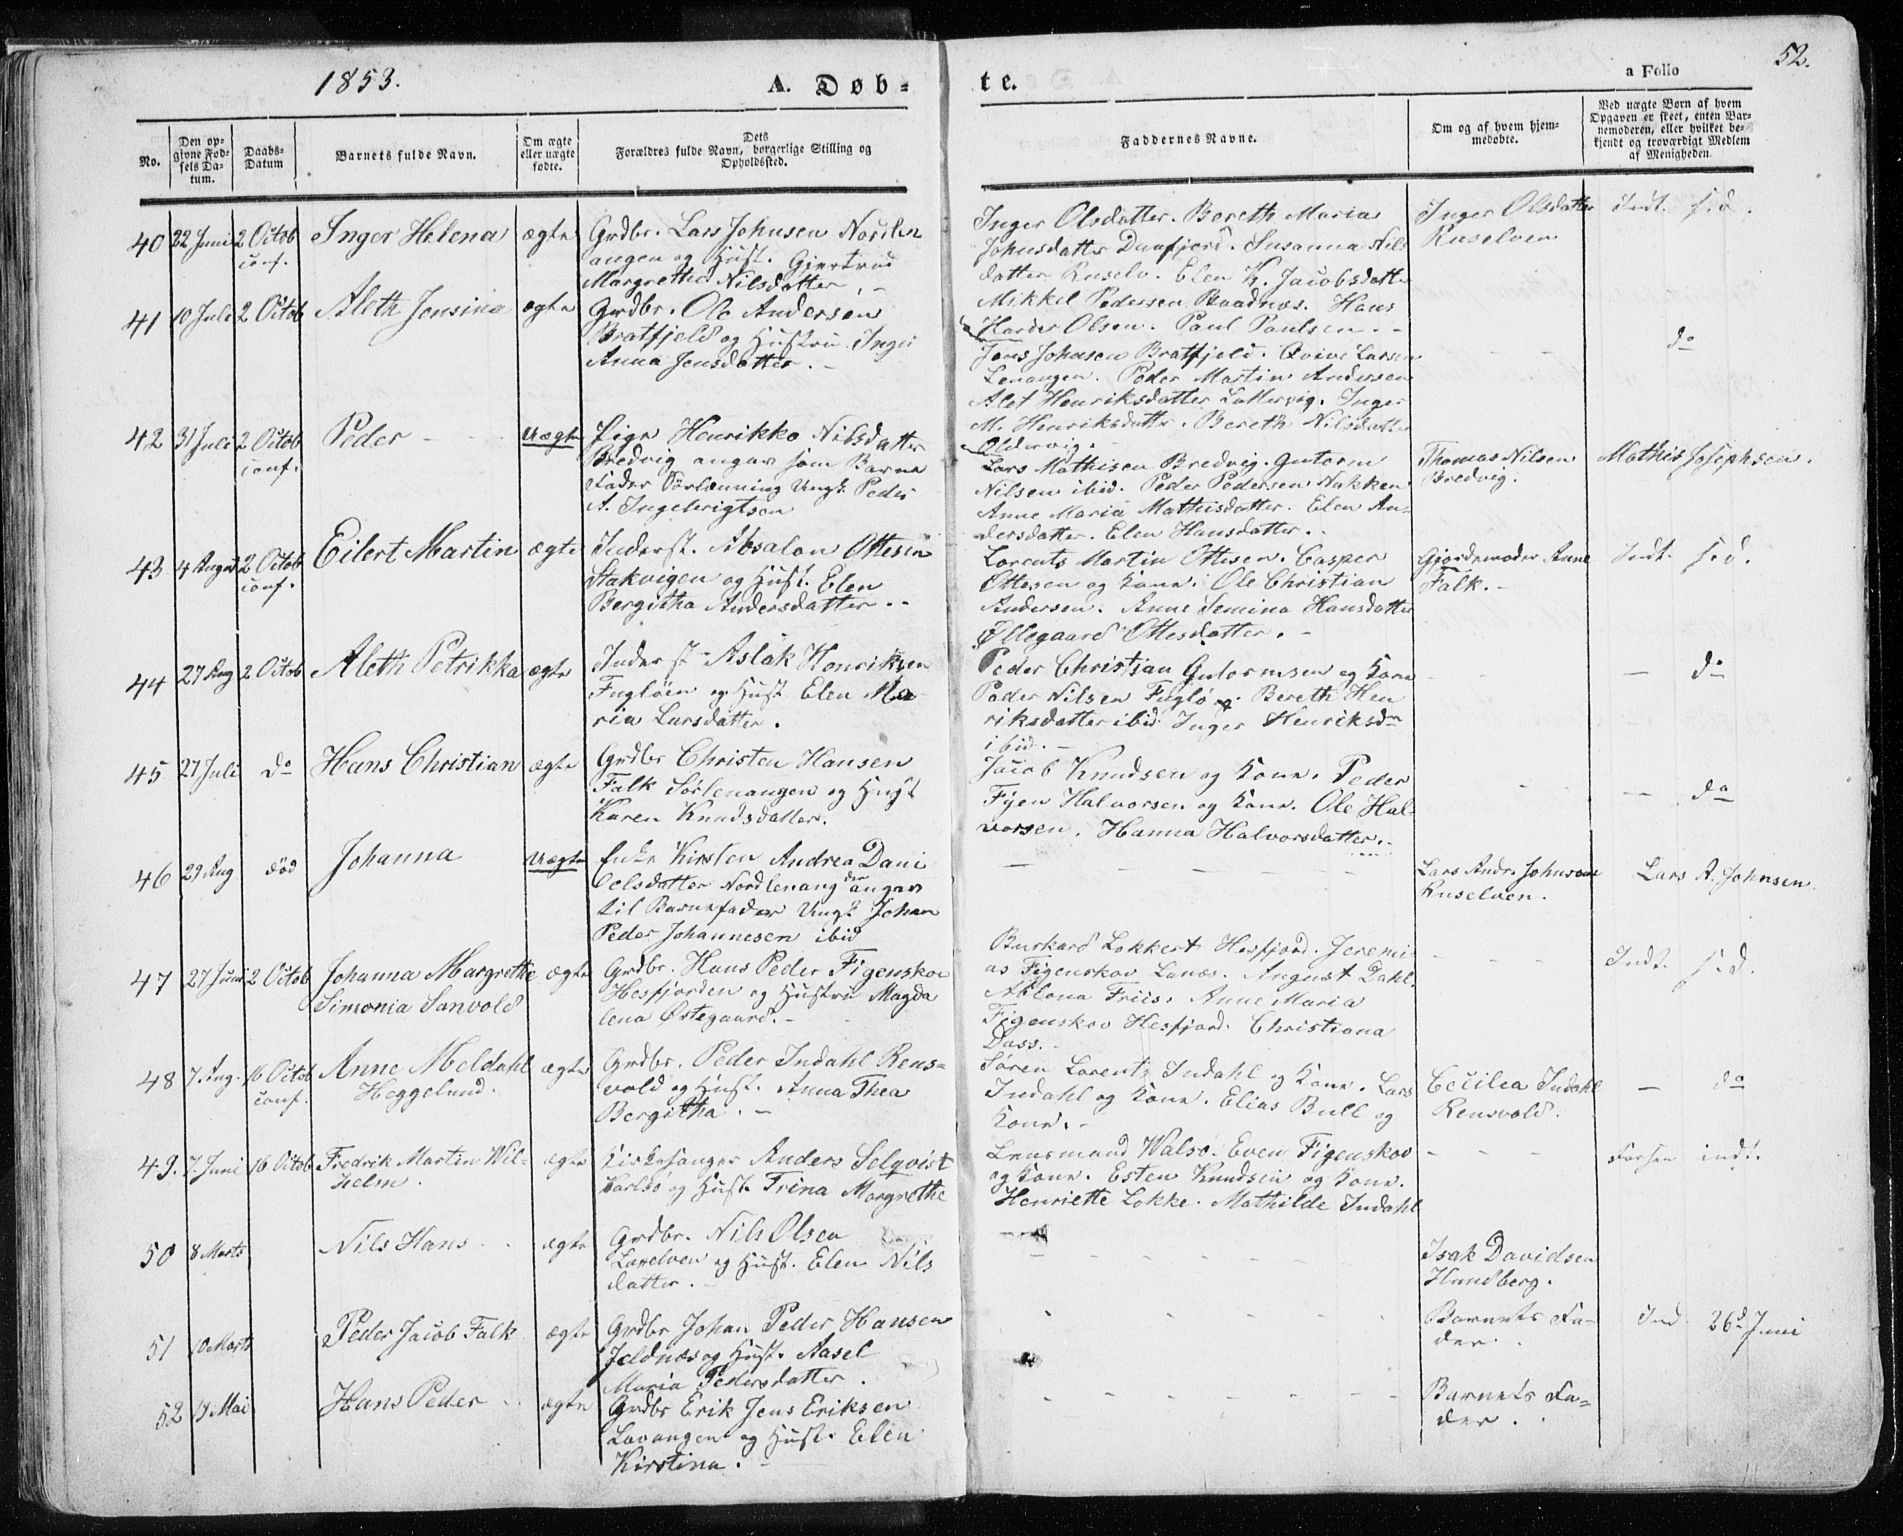 1853.
A. Døb-
te.
a Folio
52.
No.
Den op-
givne Fød-
sels Da-
tum.
Daabs-
Datum
Barnets fulde Navn.
Om ægte
eller uægte
fødte.
Dets
Forældres fulde Navn, borgerlige Stilling og
Opholdssted.
Faddernes Navne.
Om og af hvem hjem-
medøbte.
Ved uægte Børn af hvem
Opgaven er skeet, enten Bar-
nemoderen, eller hvilket be-
kjendt og troværdigt Medlem
af Menigheden.
40 22 Juni 2 Octob Inger Helena ægte Grdbr. Lars Johnsen Nordlen
conf. angen og Hust. Gjertrud
Margrethe Nilsdatter. -
Inger Olsdatter. Bereth Maria
Johnsdatter Daafjord. Susanna Nils
datter Ruselv. Elen K. Jacobsdatter
Mikkel Pedersen Baadnæs. Hans
Harder Olsen. Paul Paulsen. -
Inger Olsdatter
Ruselven
Indt. s. d.
41 10 Juli 2 Octob Aleth Jensina ægte Grdbr. Ole Andersen
Bratfjeld og Hustru Inger
Anna Jensdatter. -
Jens Johnsen Bratfjeld. Qvive Larsen
Lenangen. Peder Martin Andersen
Alet Henriksdatter Lattervig. Inger
M. Henriksdatter. Bereth Nilsdatter
Oldervig.
do
42 31 Juli 2 Octob Peder - - - Uægte Pige Henrikke Nilsdatter
conf. Bredvig angav som Barne
fader Sörlenning Ungk. Peder
A. Ingebrigtsen
Lars Mathisen Bredvig. Gutorm
Nilsen ibid. Peder Pedersen Nakken
Anne Maria Mathisdatter. Elen An-
dersdatter. Elen Hansdatter. -
Thomas Nilsen
Bredvig.
Mathis Josephsen.
43 4 August 2 Octob Eilert Martin ægte Inderst. Absalon Ottesen
conf. Stakvigen og Hust. Elen
Bergitha Andersdatter. -
Lorents Martin Ottesen. Casper
Ottesen og Kone. Ole Christian
Andersen. Anne Semina Hansdatter
Øllegaard Ottesdatter. -
Gjordemoder Anne
Falk. -
Indt. s. d.
44 27 Aug 2 Octob Aleth Petrikka ægte Inderst - Aslak Henriksen
Fugløen og Hust Elen Ma-
ria Larsdatter.
Peder Christian Gutormsen og Kone
Peder Nilsen Fuglø. Bereth Hen
riksdatter ibid. Inger Henriksdr
ibid. -
- do
45 27 Juli do Hans Christian ægte Grdbr Christen Hansen
Falk Sørlenangen og Hust
Karen Knudsdatter.
Jacob Knudsen og Kone. Peder
Fyen Halvorsen og Kone. Ole Hal-
vorsen. Hanna Halvorsdatter. -
- do
46 29 Aug död Johanna Uægte Enke Kirsten Andrea Dani
elsdatter Nordlenang der angav
til Barnefader Ungk Johan
Peder Johannesen ibid
Lars Andr. Johnsen
Ruselven.
Lars A. Johnsen.
47 27 Juni 2 Octob Johanna Margrethe ægte Grdbr. Hans Peder Figenskou
Simonia Sanvold Hesfjorden og Hustru Magda
lena Østegaard. -
Burkard Lokkert Hesfjord. Jeremi-
as Figenskov Lanæs. August Dahl.
Ablona Friis. Anne Maria
Figenskov Hesfjord. Christiana
Dass. -
Indt. s. d.
48 7 Aug. 16 Octob Anne Meldahl ægte Grdbr. Peder Indahl Rens-
conf. Heggelund. vold og Hust. Anna Thea
Bergitha. -
Søren Lorents Indahl og Kone. Lars
Indahl og Kone. Elias Bull og
Kone. -
Cecilea Indahl
Rensvold.
- do
49. 7. Juni 16 Octob Fredrik Martin Wil- ægte Kirkesanger Anders Selqvist
helm. Karlsö og Hust. Trina Margrethe
Lensmand Walsø. Even Figenskov
og Kone. Esten Knudsen og Kone.
Henriette Lokke. Mathilde Indahl
indt.
50 8 Marts Nils Hans - - ægte Grdbr. Nils Olsen
og Hust. Elen Nils
datter. -
Isak Davidsen
Hundberg.
51 10 Marts Peder Jacob Falk ægte Grdbr Johan Peder Hansen
Jeldnæs og Hust. Aasel
Maria Pedersdatter.
Barnets Fa-
der.
Ind. 26d Juni
52 17 Mai Hans Peder - - ægte Grdbr Erik Jens Eriksen
Lavangen og Hust. Elen
Kirstina. -
Barnets Fa-
der.